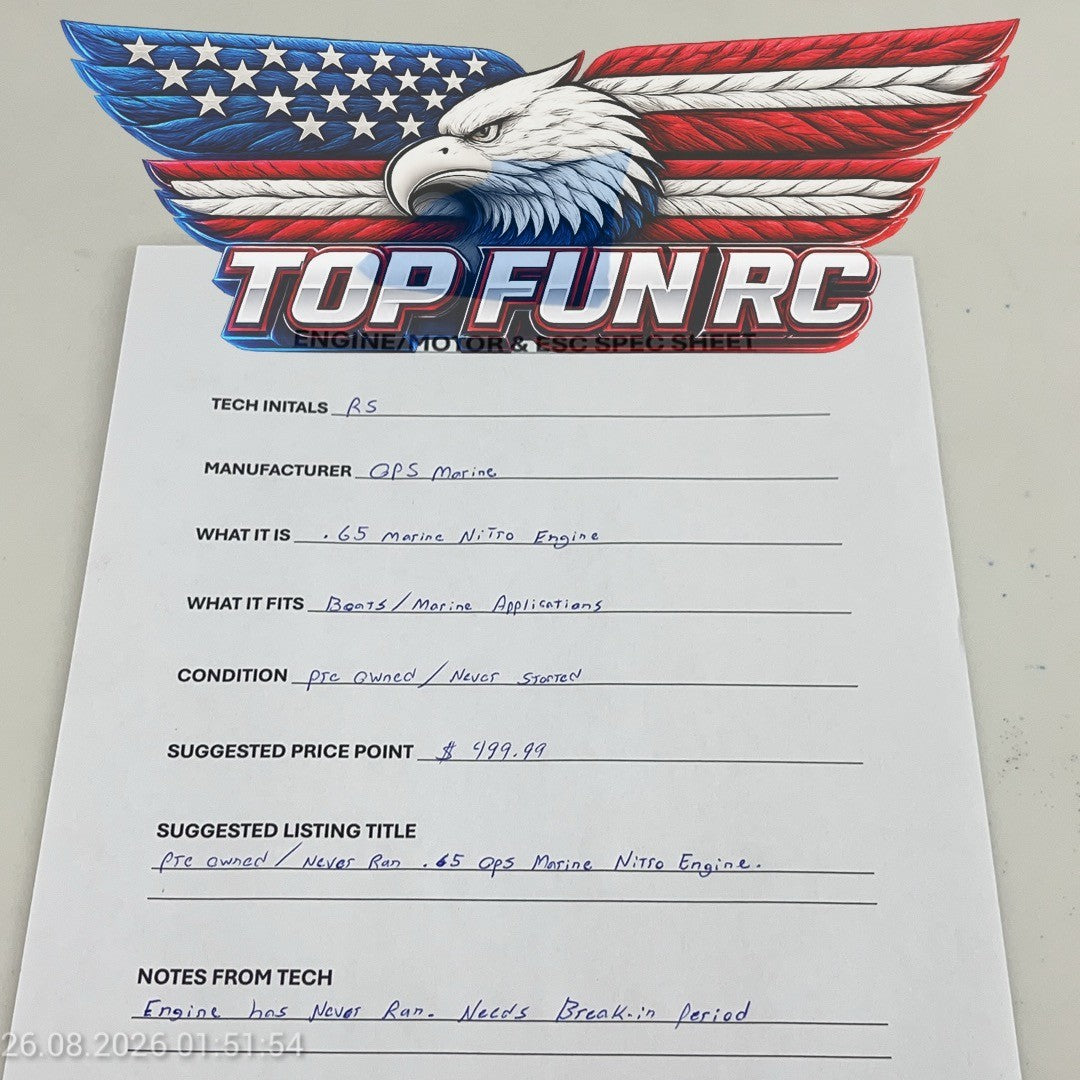 TOP FUN RC
ENGINE/MOTOR & ESC SPEC SHEET
TECH INITALS RS
MANUFACTURER OPS Marine
WHAT IT IS .65 Marine Nitro Engine
WHAT IT FITS Boats/Marine Applications
CONDITION Pre owned / Never Started
SUGGESTED PRICE POINT $ 499.99
SUGGESTED LISTING TITLE
Pre owned / Never Ran .65 OPS Marine Nitro Engine.
NOTES FROM TECH
Engine has Never Ran. Needs Break-in Period
26.08.2026 01:51:54